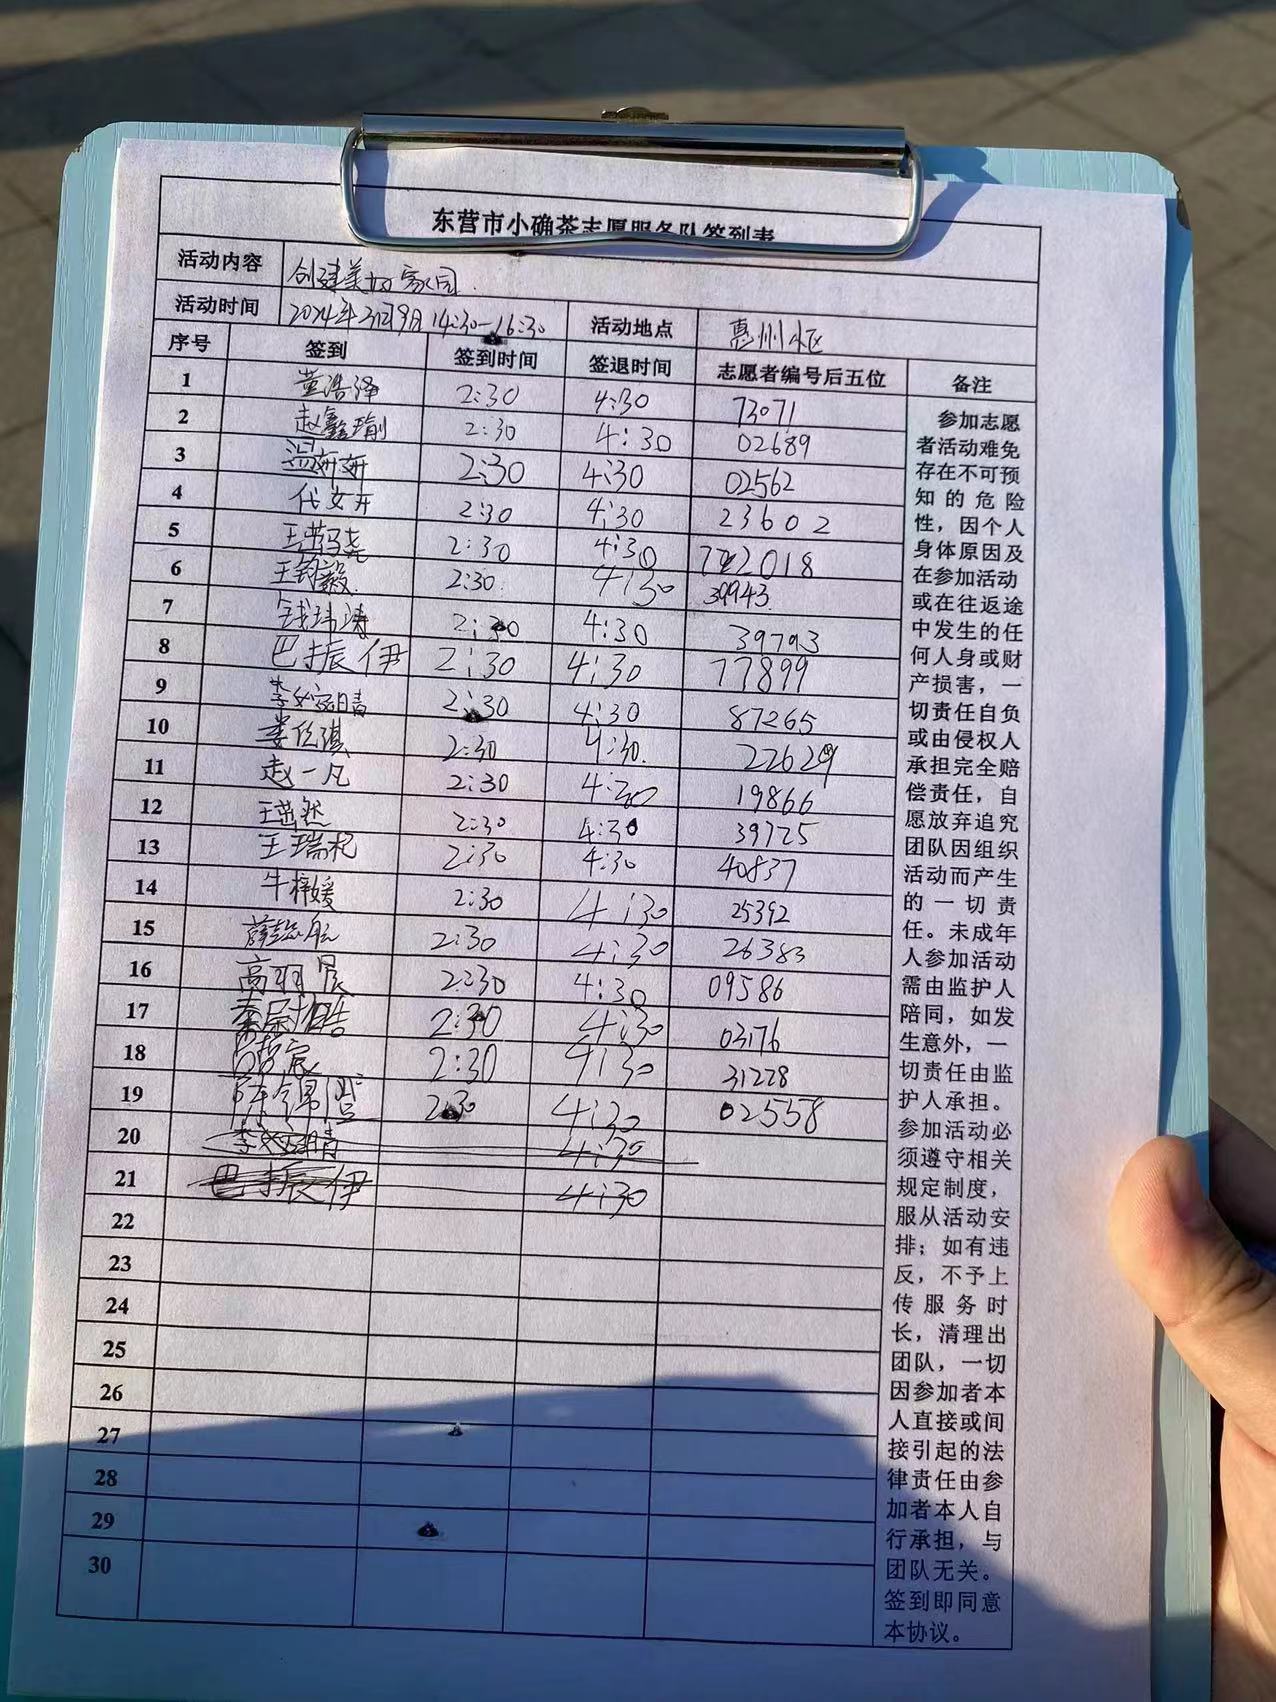 东营市小确茶志愿服务队签到表
活动内容 创建美好家园.
活动时间 2024年3月9日 14:30-16:30 活动地点 惠州
序号 签到 签到时间 签退时间 志愿者编号后五位 备注
1 董浩泽 2:30 4:30 73071
2 赵鑫瑜 2:30 4:30 02689
3 温妍妍 2:30 4:30 02562
4 代文卉 2:30 4:30 23602
5 2:30 4:30 2018
6 王钧毅 2:30 4:30 39943
7 钱玮涛 2:30 4:30 39793
8 巴振伊 2:30 4:30 77899
9 2:30 4:30 87265
10 娄依淇 2:30 4:30 22629
11 赵一凡 2:30 4:30 19866
12 王茁然 2:30 4:30 39725
13 王瑞杞 2:30 4:30 40837
14 牛梓媛 2:30 4:30 25392
15 2:30 4:30 26383
16 高羽晨 2:30 4:30 09586
17 2:30 4:30 03176
18 2:30 4:30 31228
19 2:30 4:30 02558
20 4:30
21 巴振伊 4:30
22
23
24
25
26
27
28
29
30
参加志愿
者活动难免
存在不可预
知的危险
性，因个人
身体原因及
在参加活动
或在往返途
中发生的任
何人身或财
产损害，一
切责任自负
或由侵权人
承担完全赔
偿责任，自
愿放弃追究
团队因组织
活动而产生
的一切责
任。未成年
人参加活动
需由监护人
陪同，如发
生意外，一
切责任由监
护人承担。
参加活动必
须遵守相关
规定制度，
服从活动安
排；如有违
反，不予上
传服务时
长，清理出
团队，一切
因参加者本
人直接或间
接引起的法
律责任由参
加者本人自
行承担，与
团队无关。
签到即同意
本协议。